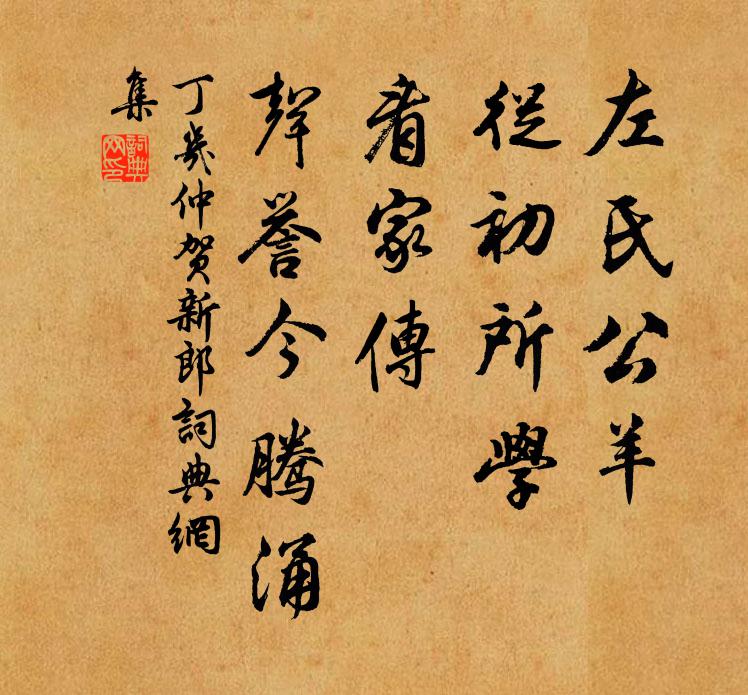 左氏公羊
從初所學
看家傳
聲譽今騰涌
丁幾仲賀新郎詞典網
集
詞典網印